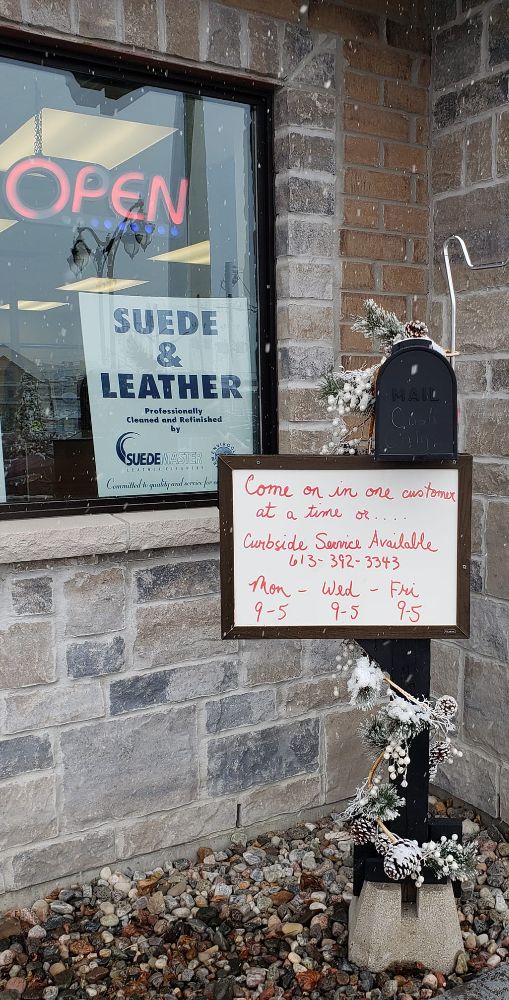 OPEN
SUEDE
&
LEATHER
Professionally
Cleaned and Refinished
by
SUEDEMASTER
LEATHERCLEANERS
Committed to quality and service for
MAIL
Come on in one customer
at a time or....
Curbside Service Available
613-392-3343
Mon - Wed - Fri
9-5 9-5 9-5